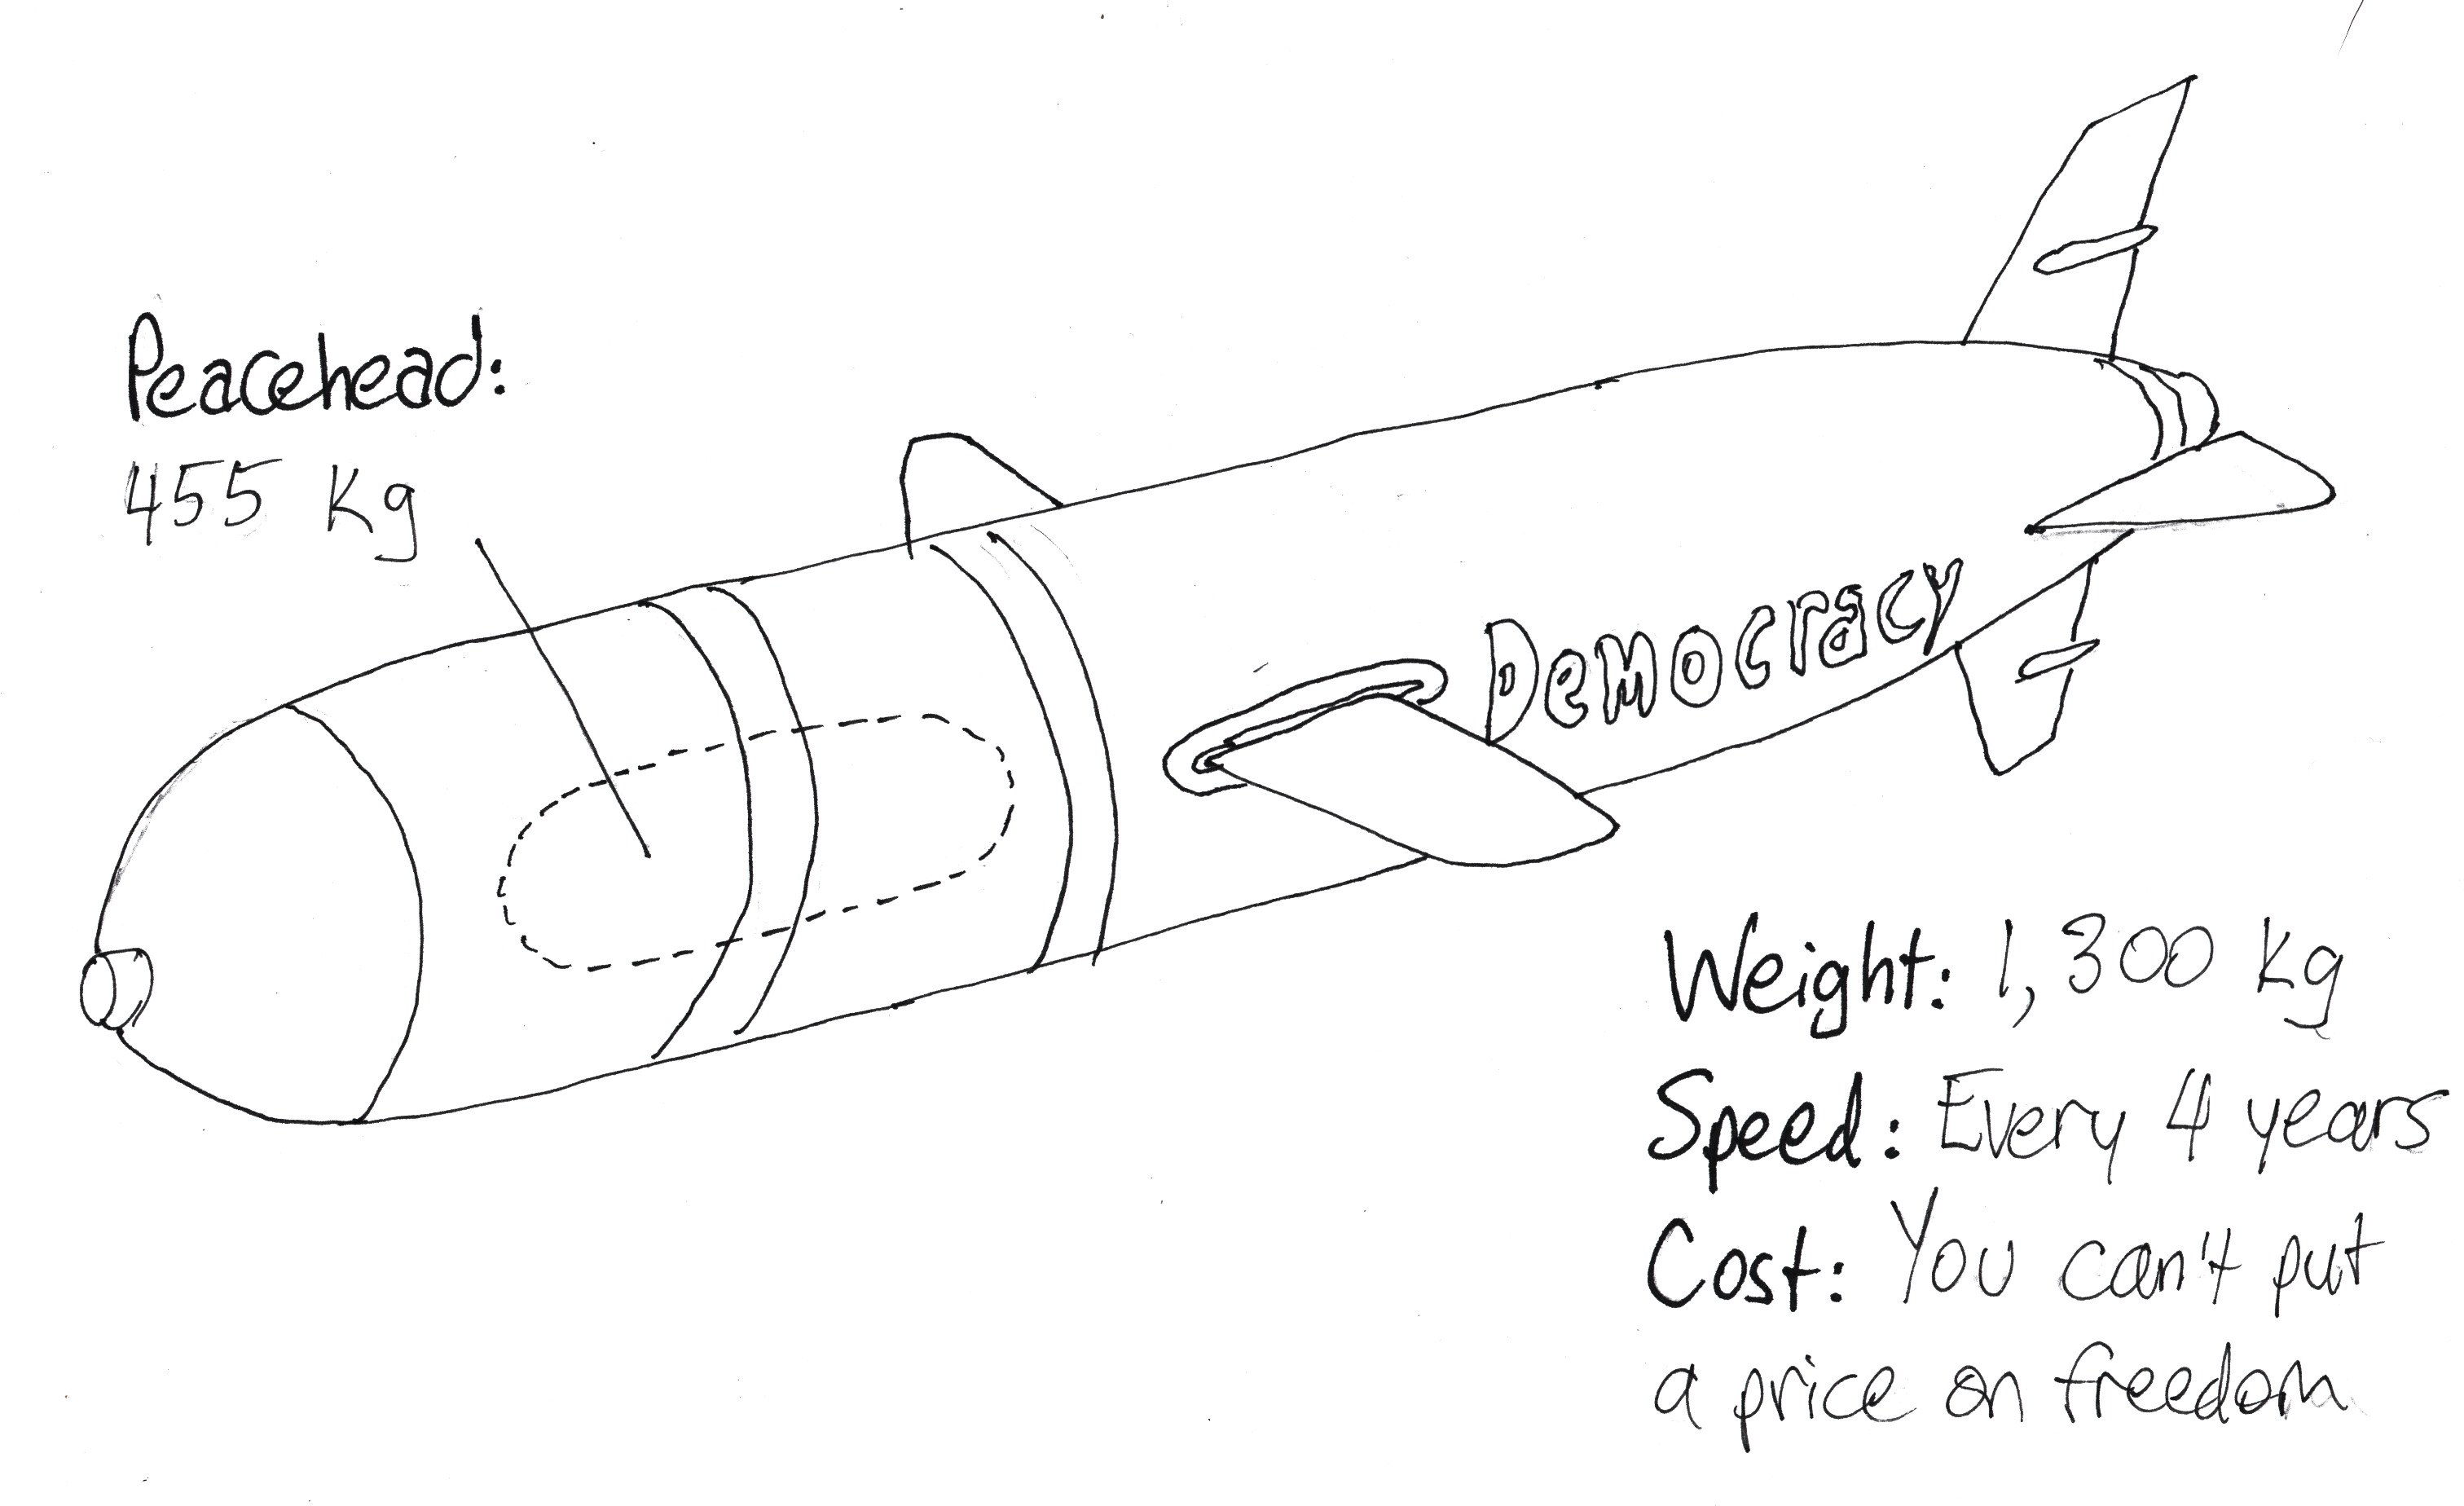 Peacehead:
455 Kg
Democracy
Weight: 1,300 kg
Speed: Every 4 years
Cost: You can't put
a price on freedom